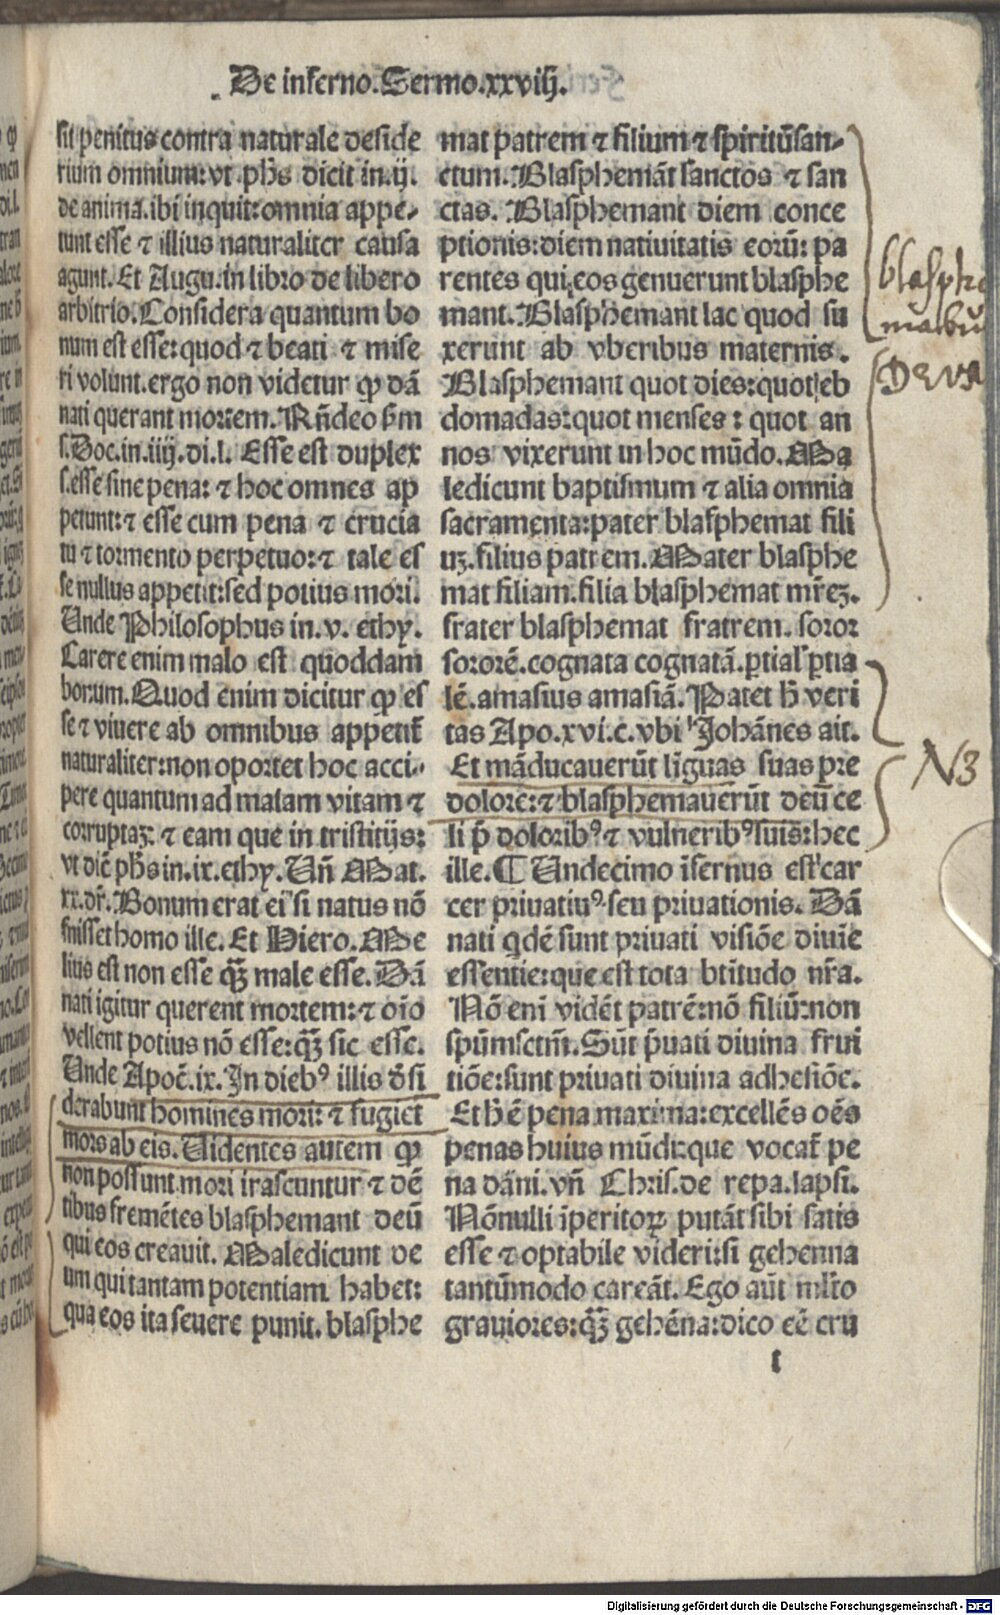 De inferno. Sermo. xxviij.
sit penitus contra naturale deside
rium omnium: vt .phs̄ dicit in .ij.
de anima. ibi inquit: omnia appe-
tunt esse ⁊ illius naturaliter causa
agunt. Et Augu. in libro de libero
arbitrio. Considera quantum bo
num est esse: quod ⁊ beati ⁊ mise
ri volunt. ergo non videtur ꝙ dā
nati querant mortem. Rn̄deo sm̄
s. Doc. in .iiij. di. l. Esse est duplex
s. esse sine pena: ⁊ hoc omnes ap
petunt: ⁊ esse cum pena ⁊ crucia
tu ⁊ tormento perpetuo: ⁊ tale es
se nullus appetit: sed potius mori.
Unde Philosophus in .v. ethy.
Carere enim malo est quoddam
bonum. Quod enim dicitur ꝙ es
se ⁊ viuere ab omnibus appetit̄
naturaliter: non oportet hoc acci-
pere quantum ad malam vitam ⁊
corruptaꝫ: ⁊ eam que in tristitijs:
vt dic̄ phs̄ in .ix. ethy. Un̄ Mat.
xx. dr̄. Bonum erat ei si natus nō
fuisset homo ille. Et Hiero. Me
lius est non esse qȝ̄ male esse. Dā
nati igitur querent mortem: ⁊ oīo
vellent potius nō esse: qȝ̄ sic esse.
Unde Apoc̄. ix. In diebꝰ illis d̄si
derabunt homines mori: ⁊ fugiet
mors ab eis. Uidentes autem ꝙ
non possunt mori irascuntur ⁊ dē
tibus fremētes blasphemant deū
qui eos creauit. Maledicunt de
um qui tantam potentiam habet:
qua eos ita seuere punit. blasphe
mat patrem ⁊ filium ⁊ spiritū san-
ctum. Blasphemāt sanctos ⁊ san
ctas. Blasphemant diem conce
ptionis: diem natiuitatis eorū: pa
rentes qui eos genuerunt blasphe
mant. Blasphemant lac quod su
xerunt ab vberibus maternis.
Blasphemant quot dies: quot eb
domadas: quot menses: quot an
nos vixerunt in hoc mūdo. Ma
ledicunt baptismum ⁊ alia omnia
sacramenta: pater blasphemat fili
uꝫ. filius patrem. Mater blasphe
mat filiam. filia blasphemat mr̄eꝫ.
frater blasphemat fratrem. soror
sororē. cognata cognatā. ꝑtialꝭ ꝑtia
lē. amasius amasiā. Patet h̄ veri
tas Apo. xvi. c. vbi Johānes ait.
Et māducauerūt līguas suas pre
dolore: ⁊ blasphemauerūt deū ce
li p̄ doloribꝰ ⁊ vulneribꝰ suis: hec
ille. ¶ Undecimo īfernus est car
cer priuatiuꝰ seu priuationis. Dā
nati qdē sunt priuati visiōe diuīe
essentie: que est tota btītudo nr̄a.
Nō eni vidēt patrē: nō filiū: non
spūmsctm̄. Sūt p̄uati diuina frui
tiōe: sunt priuati diuina adhesiōe.
Et h̄ ē pena maxima: excellēs oēs
penas huius mūdi: que vocat̄ pe
na dāni. vn̄ Chris. de repa. lapsi.
Nōnulli īperitoꝝ putāt sibi satis
esse ⁊ optabile videri: si gehenna
tantūmodo careāt. Ego aūt mlt̄o
grauiores: qȝ̄ gehēna: dico eē cru
t
blasphe
N3
Digitalisierung gefördert durch die Deutsche Forschungsgemeinschaft - DFG